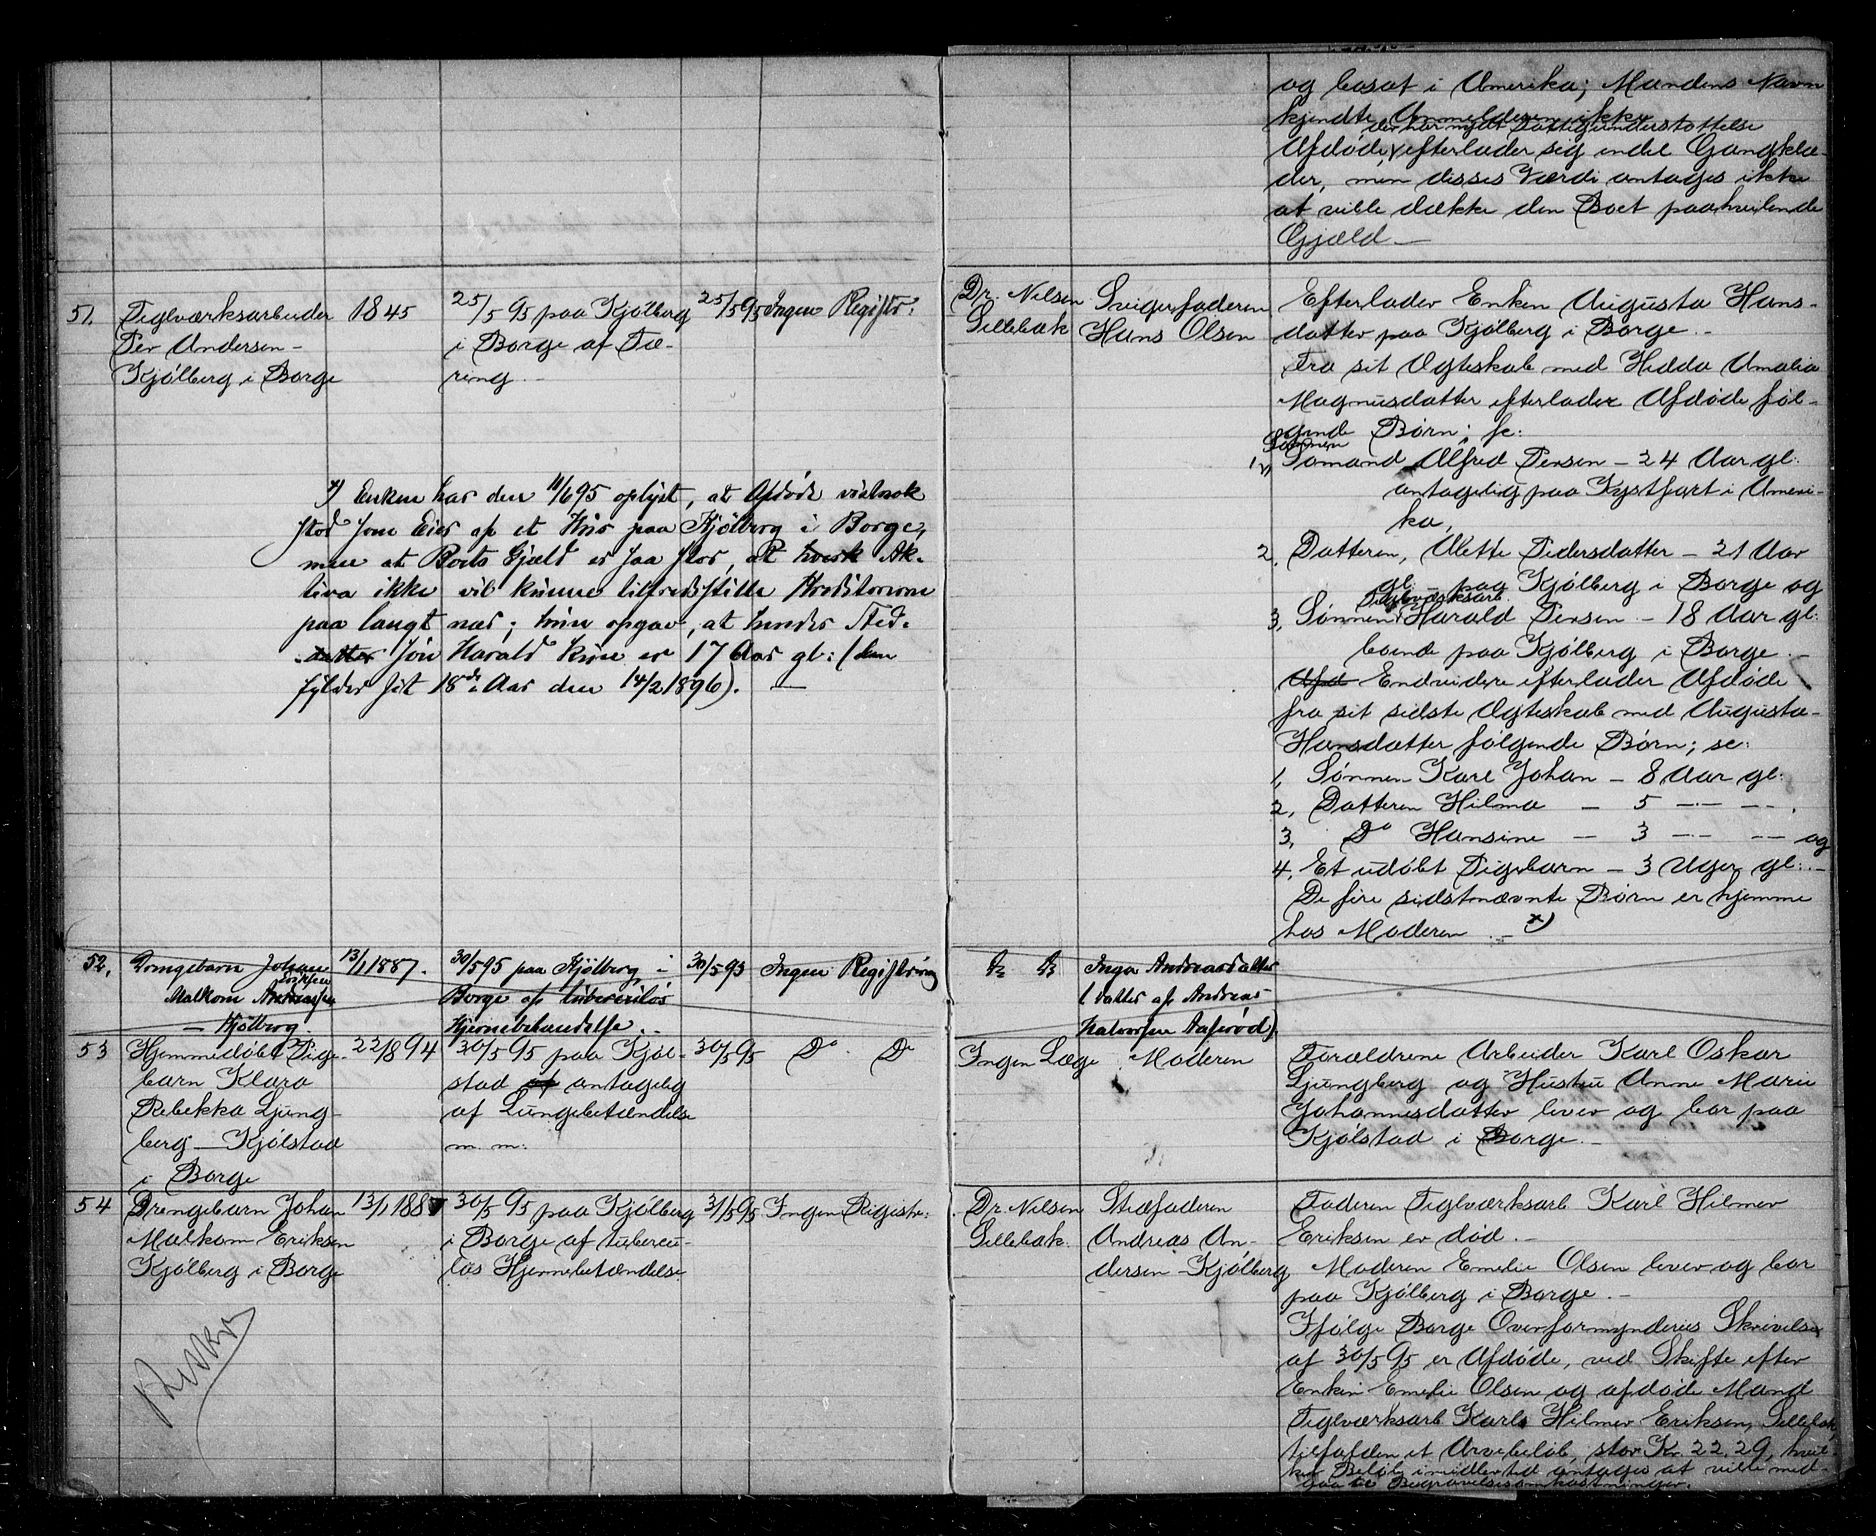 og bosat i Amerika; Mandens Navn
kjendte Anmelderen ikke
der har nydt Fattigunderstøttelse
Afdøde efterlader sig endel Gangklæ-
der, men disses Værdi antages ikke
at ville dække den Boet paahvilende
Gjæld —
51. Teglværksarbeider
Per Andersen -
Kjølberg i Borge
1845
25/5 95 paa Kjølberg
i Borge af Tæ-
ring -
25/5 95
Ingen Registr:
Dr. Nilsen
Sellebak
Svigerfaderen
Hans Olsen
Efterlader Enken Augusta Hans-
datter paa Kjølberg i Borge. -
Fra sit Ægteskab med Hedda Amalia
Magnusdatter efterlader Afdøde føl-
gende Børn; se:
Sønnen
1, Sømand Alfred Persen - 24 Aar gl:
antagelig paa Kystfart i Ameri-
ka,
2, Datteren, Alette Pedersdatter - 21 Aar
gl: - paa Kjølberg i Borge og
Teglværksarb.
3, Sønnen Harald Persen - 18 Aar gl:
boende paa Kjølberg i Borge. -
Afd Endvidere efterlader Afdøde
fra sit sidste Ægteskab med Augusta
Hansdatter følgende Børn; se:
1, Sønnen Karl Johan - 8 Aar gl:
2, Datteren Hilma - 5 -·- -·-.
3, Do Hansine - 3 -·- -·- og
4, Et udøbt Pigebarn - 3 Uger gl: -
De fire sidstnævnte Børn er hjemme
hos Moderen. - x)
x) Enken har den 11/6 95 oplyst, at Afdøde vistnok
stod som Eier af et Hus paa Kjølberg i Borge,
men at Boets Gjæld er saa stor, at hvert Ak-
tiva ikke vil kunne tilfredsstille Kreditorerne
paa langt nær; hun opgav, at hendes Sted-
datter søn Harald kun er 17 Aar gl: (han
fylder sit 18de Aar den 14/2 1896). —
52, Drengebarn Johan
Malkom Andreassen Eriksen
- Kjølberg.
13/1 1887.
30/5 95 paa Kjølberg i
Borge af tuberculøs
Hjernebetændelse. -
30/5 95
Ingen Registrering
Do Do
Inga Andreasdatter
(datter af Andreas
Halvorsen Aaserød).
53 Hjemmedøbt Pige-
barn Klara
Rebekka Ljung-
berg - Kjølstad
i Borge
22/8 94
30/5 95 paa Kjøl-
stad af antagelig
af Lungebetændelse
m. m.
30/5 95
Do Do
Ingen Læge
Moderen
Forældrene Arbeider Karl Oskar
Ljungberg og Hustru Anne Marie
Johannesdatter lever og bor paa
Kjølstad i Borge. -
54 Drengebarn Johan
Malkom Eriksen
Kjølberg i Borge
13/1 1887
30/5 95 paa Kjølberg
i Borge af tubercu-
løs Hjernebetændelse
31/5 95
Ingen Registr:
Dr. Nilsen
Sellebak.
Stedfaderen
Andreas An-
dersen Kjølberg
Faderen Teglværksarb Karl Hilmer
Eriksen er død. -
Moderen Emelie Olsen lever og bor
paa Kjølberg i Borge. -
Ifølge Borge Overformynderies Skrivelse
af 30/5 95 er Afdøde, ved Skifte efter
Enken Emelie Olsen og afdøde Mand
Teglværksarb Karl Hilmer Eriksen, Sellebak
tilfalden et Arvebeløb, stor Kr. 22.29, hvil-
ket Beløb imidlertid antages at ville med-
gaa til Begravelsesomkostninger.